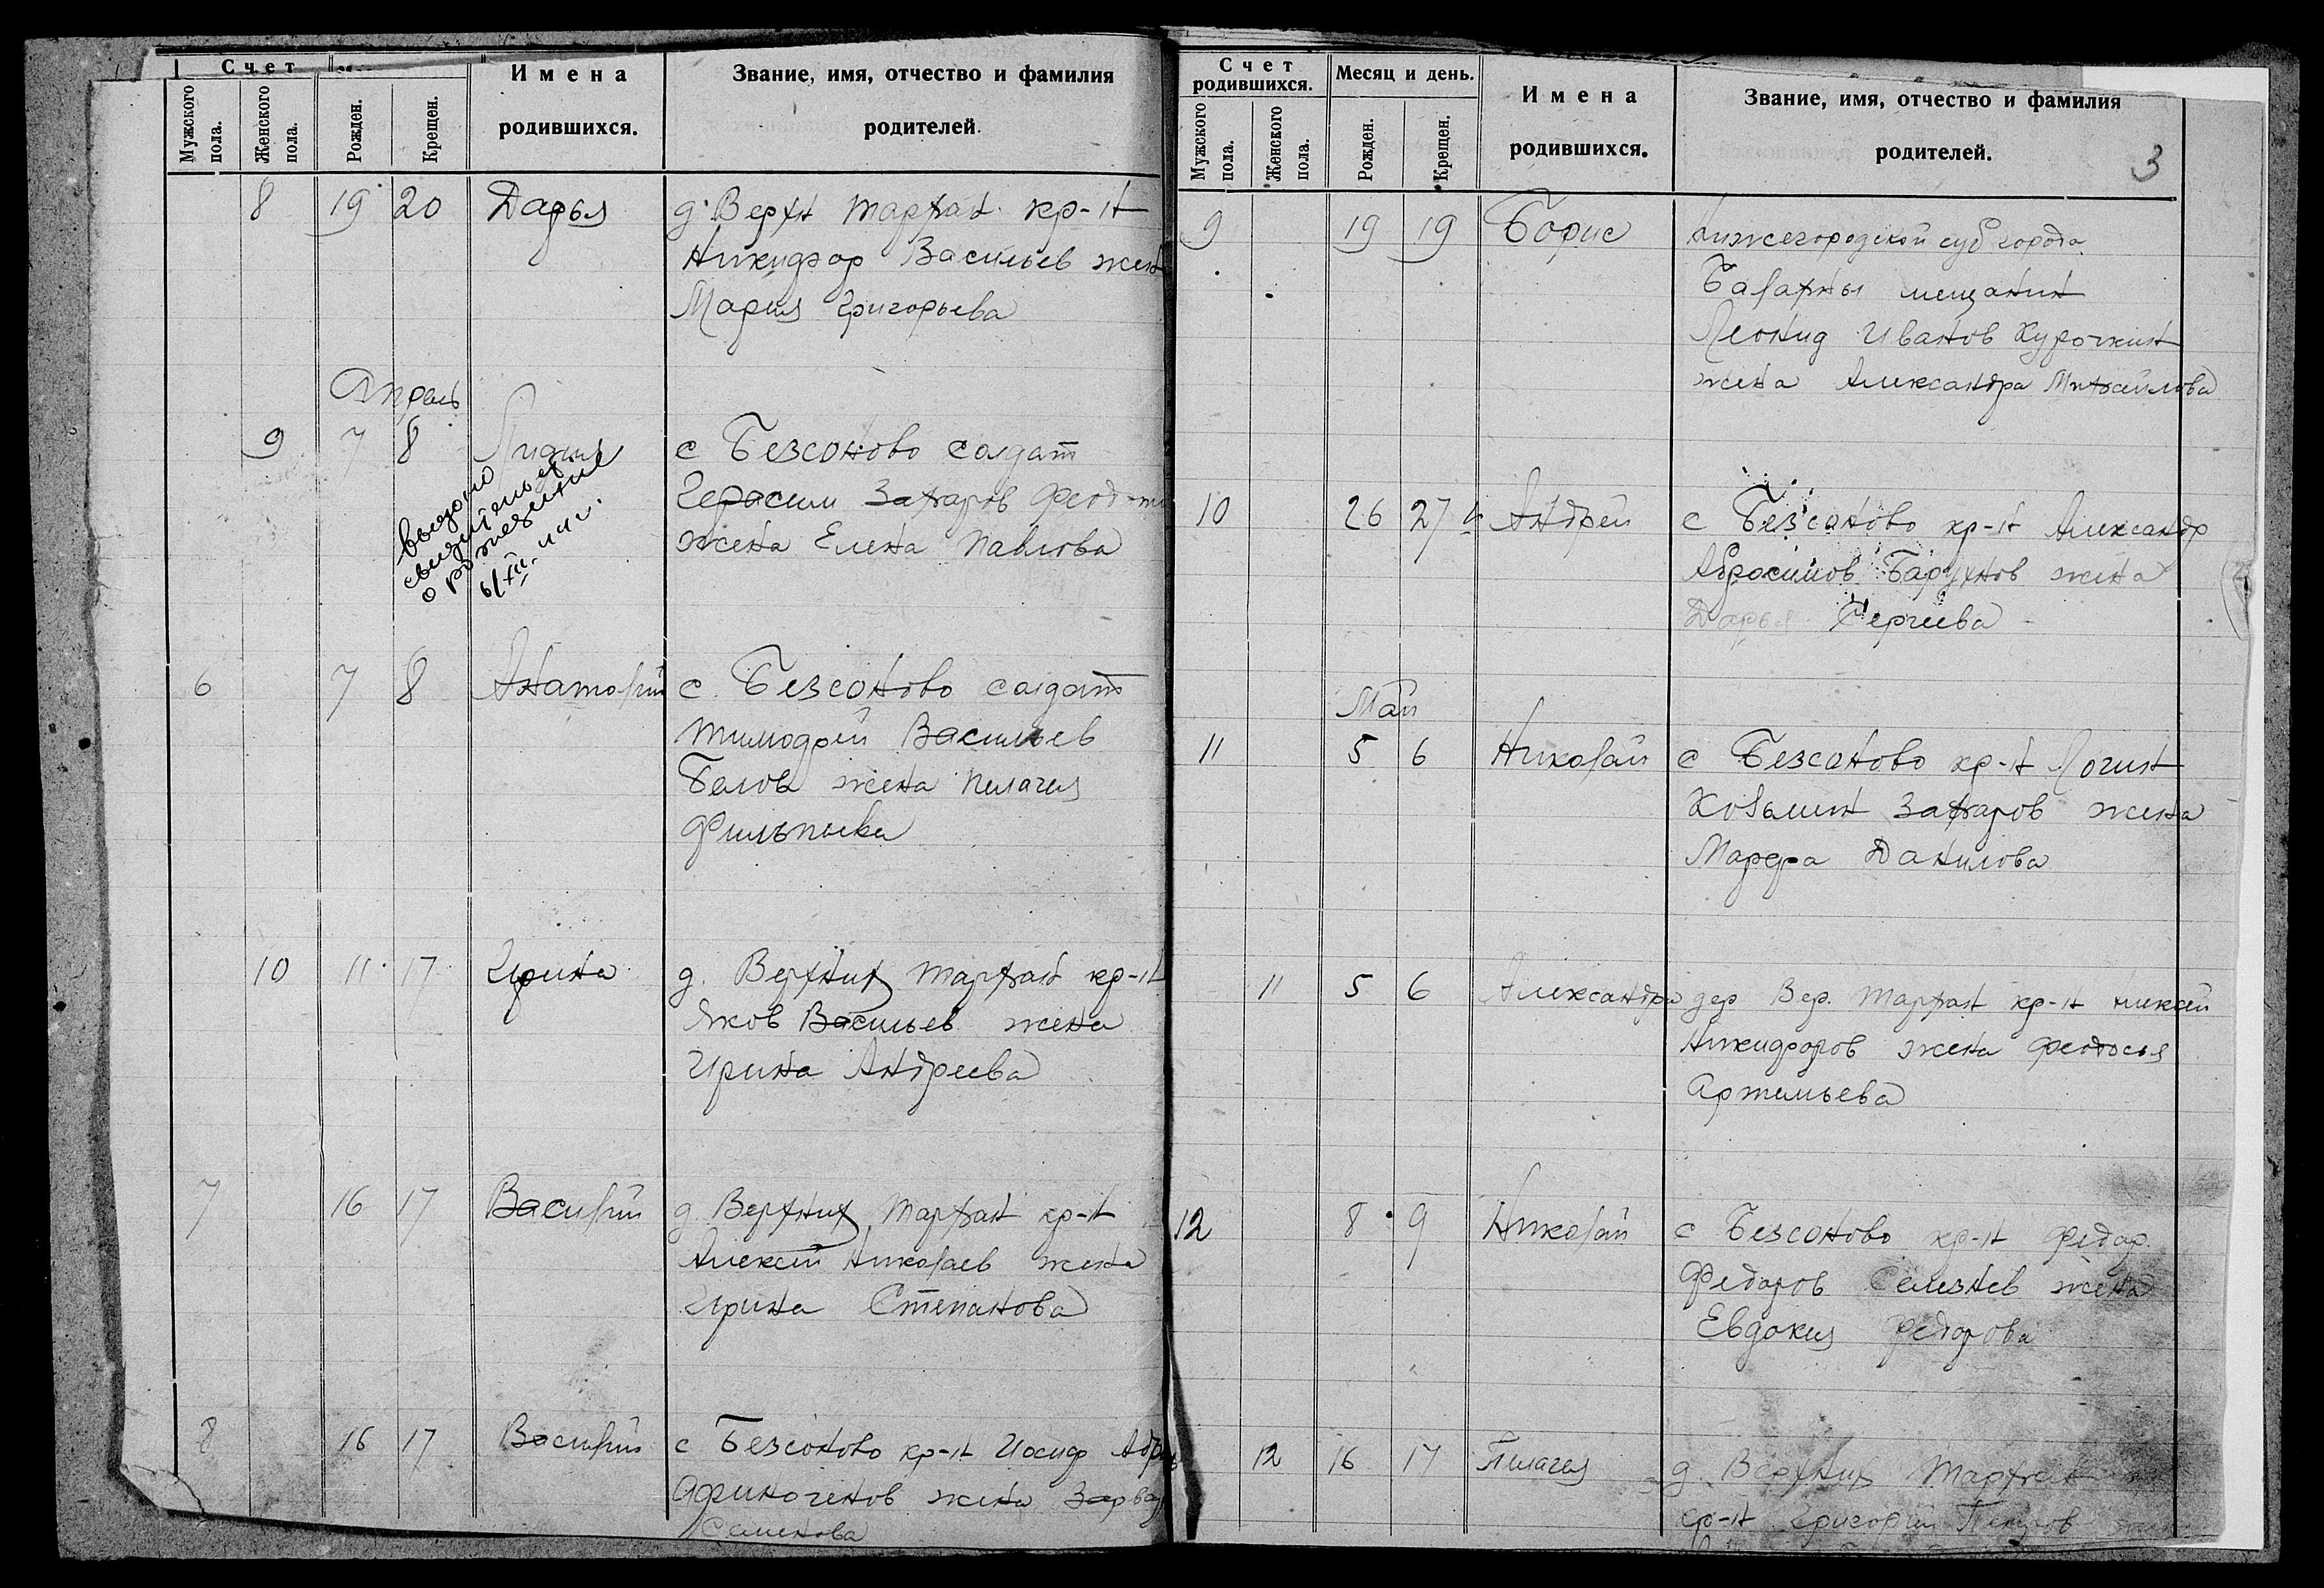 Счет
Имена
родившихся.
Звание, имя, отчество и фамилия
родителей.
Мужского пола.
Женского пола.
Рожден.
Крещен.
8 19 20 Дарья д. Верхн Тархан кр-н
Никифор Васильев жена
Мария Григорьева
Апрель
9 7 8 Лидия с Безсоново солдат
Герасим Захаров
жена Елена Павлова
выдано
свидетельс.
о рождение
6/XII
6 7 8 Анатолий с. Безсоново солдат
Тимофей Васильев
Белов жена Пелагея
Фильпыева
10 11 17 Ирина д. Верхних Тархан кр-н
Яков Васильев жена
Ирина Андреева
7 16 17 Василий д Верхних Тархан кр-н
Алексей Николаев жена
Ирина Степанова
8 16 17 Василий с Безсоново кр-н Иосиф
Афиногенов жена
Семенова
Счет
родившихся.
Месяц и день.
Имена
родившихся.
Звание, имя, отчество и фамилия
родителей.
3
Мужского пола.
Женского пола.
Рожден.
Крещен.
9 19 19 Борис Нижегородской губ города
Балахны мещанин
Леонид Иванов Курочкин
жена Александра Михайлова
10 26 27 Андрей с Безсоново кр-н Александр
Абросимов жена
Дарья Сергеева
Май
11 5 6 Николай с Безсоново кр-н Логин
Козьмин Захаров жена
Марфа Данилова
11 5 6 Александра дер Вер. Тархан кр-н Алексей
Никифоров жена Феодосья
Артемьева
12 8 9 Николай с Безсоново кр-н Федор
Федоров Селезнев жена
Евдокия Федорова
12 16 17 Пелагея д. Верхних Тархан
кр-н Григорий Петров